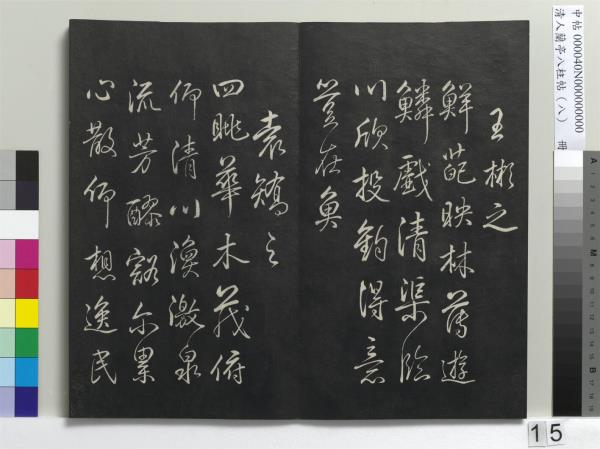 中帖 000040N000000000 冊
清人蘭亭八柱帖(八)
王彬之
鮮葩映林薄遊
鱗戲清渠臨
川欣投釣得意
豈在魚
袁嶠之
四眺華木茂俯
仰清川渙激泉
流芳醪豁尓累
心散仰想逸民
15
A
M
B